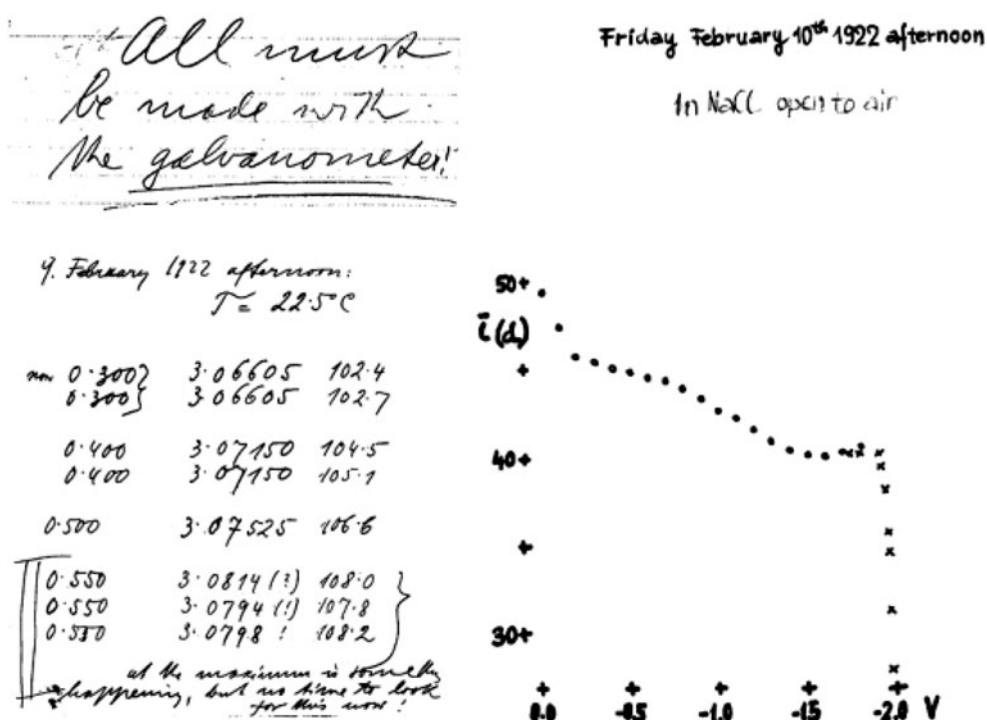 All must
be made with
the galvanometer!
9. February 1922 afternoon:
T = 22.5°C
now 0.300} 3.06605 102.4
0.300} 3.06605 102.7
0.400 3.07150 104.5
0.400 3.07150 105.1
0.500 3.07525 106.6
0.550 3.0814 (?) 108.0
0.550 3.0794 (!) 107.8
0.550 3.0798 ! 108.2
at the maximum is
happening, but no time to look
for this now!
Friday February 10th 1922 afternoon
In NaCl open to air
50
i (d)
40
30
0.0 -0.5 -1.0 -1.5 -2.0 V